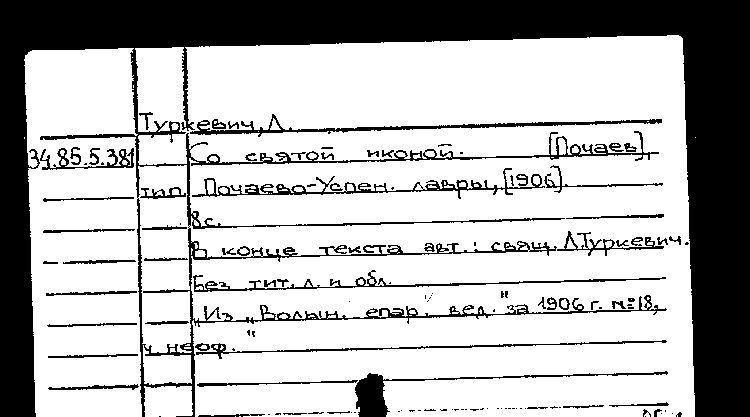 Туркевич, Л.
34.85.5.381 Со святой иконой. [Почаев],
тип. Почаево-Успен. лавры, [1906].
8 с.
В конце текста авт.: свящ. Л.Туркевич.
Без тит. л. и обл.
„Из „Волын. епар. вед." за 1906 г. №18,
ч. неоф."